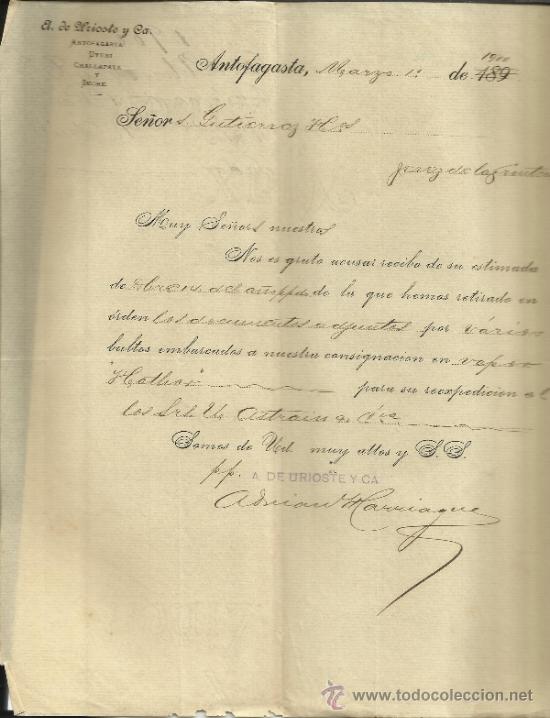 A. de Urioste y Ca.
ANTOFAGASTA
UYUNI
CHALLAPATA
Y
SUCRE.
1900
Antofagasta, Marzo 1º de 189
Señores Gutierrez Hos
Jerez de la Fronte
Muy Señors nuestros
Nos es grato acusar recibo de su estimada
de de la que hemos retirado en
órden los documentos adjuntos por vários
bultos embarcados a nuestra consignacion en vapor
"Hathor" para su reexpedicion al
los Srs U. Astrain & Cia
Somos de Ud. muy attos y S. S.
p.p. A. DE URIOSTE Y CA
Adrian Harriague
www.todocoleccion.net